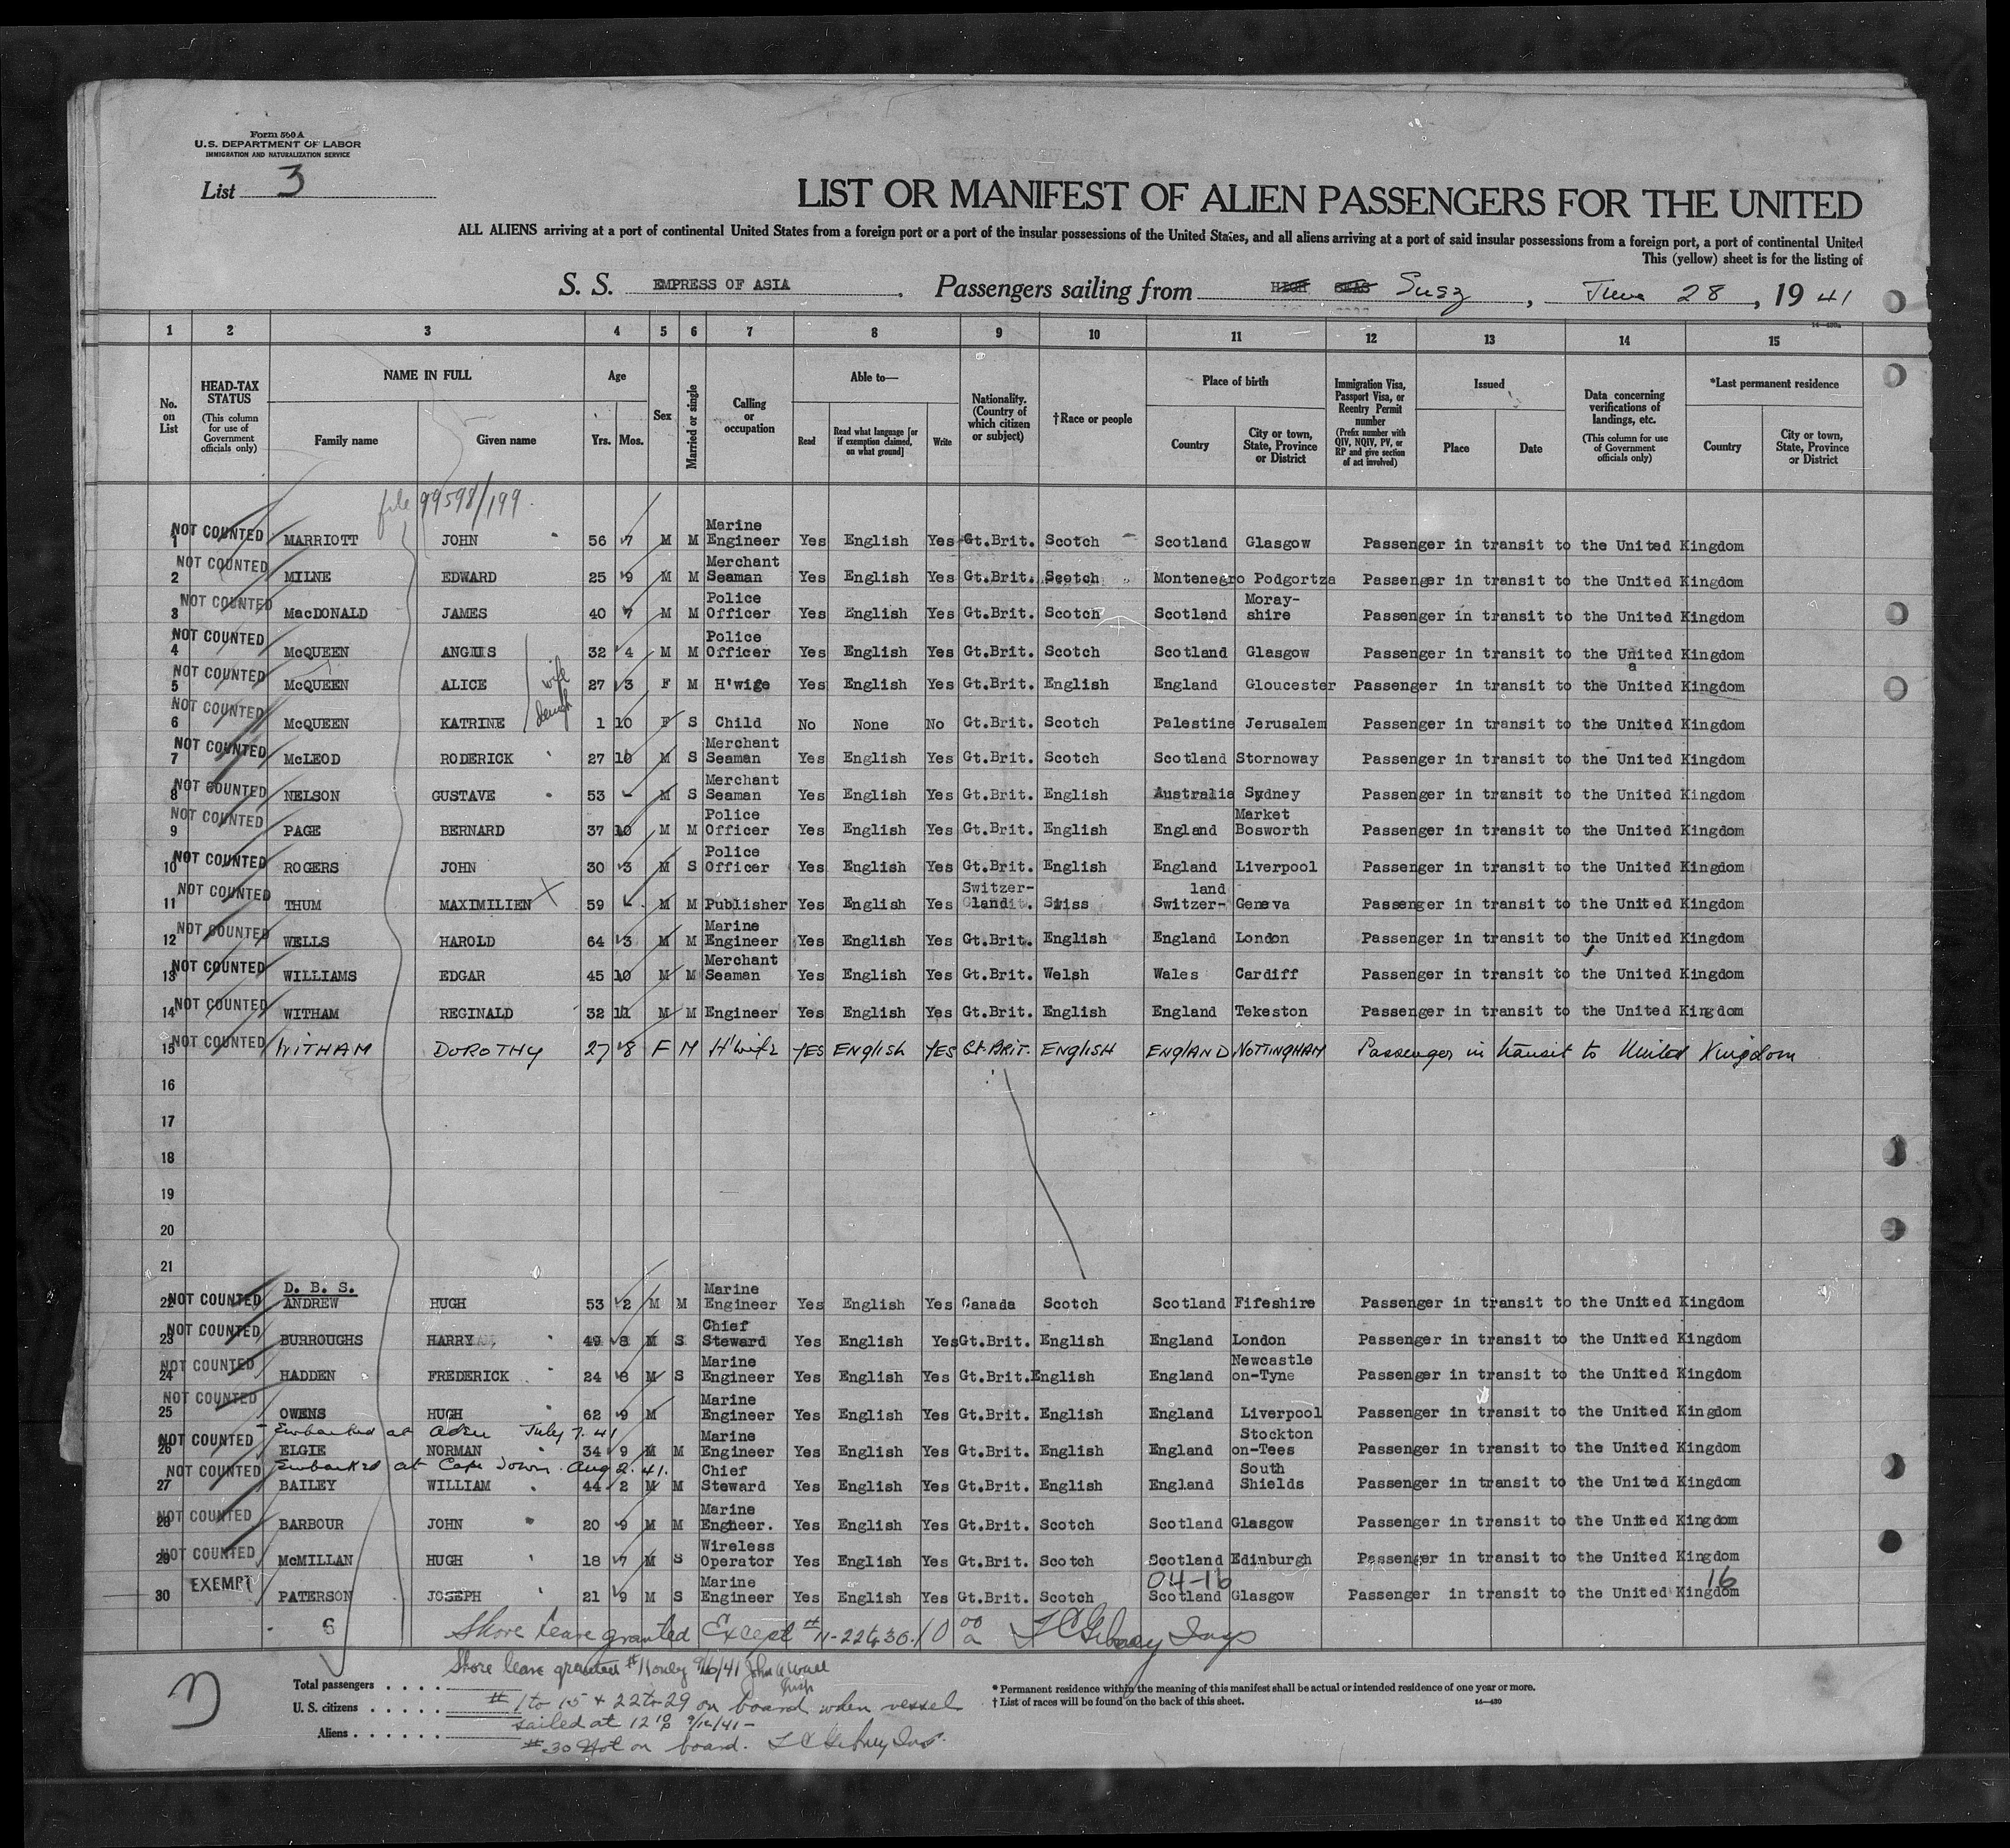 Form 500 A
U.S. DEPARTMENT OF LABOR
IMMIGRATION AND NATURALIZATION SERVICE
List 3
LIST OR MANIFEST OF ALIEN PASSENGERS FOR THE UNITED
ALL ALIENS arriving at a port of continental United States from a foreign port or a port of the insular possessions of the United States, and all aliens arriving at a port of said insular possessions from a foreign port, a port of continental United
This (yellow) sheet is for the listing of
S. S. EMPRESS OF ASIA . Passengers sailing from HIGH SEAS Suez , June 28 , 19 41
1 2 3 4 5 6 7 8 9 10 11 12 13 14 15
No. on List
HEAD-TAX STATUS (This column for use of Government officials only)
NAME IN FULL Family name Given name
Age Yrs. Mos.
Sex
Married or single
Calling or occupation
Able to— Read Read what language [or if exemption claimed, on what ground] Write
Nationality. (Country of which citizen or subject)
†Race or people
Place of birth Country City or town, State, Province or District
Immigration Visa, Passport Visa, or Reentry Permit number (Prefix number with QIV, NQIV, PV, or RP and give section of act involved)
Issued Place Date
Data concerning verifications of landings, etc. (This column for use of Government officials only)
*Last permanent residence Country City or town, State, Province or District
file 99598/199
1 NOT COUNTED MARRIOTT JOHN 56 7 M M Marine Engineer Yes English Yes Gt.Brit. Scotch Scotland Glasgow Passenger in transit to the United Kingdom
2 NOT COUNTED MILNE EDWARD 25 9 M M Merchant Seaman Yes English Yes Gt.Brit. Scotch Montenegro Podgortza Passenger in transit to the United Kingdom
3 NOT COUNTED MacDONALD JAMES 40 7 M M Police Officer Yes English Yes Gt.Brit. Scotch Scotland Moray-shire Passenger in transit to the United Kingdom
4 NOT COUNTED McQUEEN ANGUS 32 4 M M Police Officer Yes English Yes Gt.Brit. Scotch Scotland Glasgow Passenger in transit to the United Kingdom
5 NOT COUNTED McQUEEN ALICE wife 27 3 F M H'wige Yes English Yes Gt.Brit. English England Gloucester Passenger in transit to the United Kingdom
6 NOT COUNTED McQUEEN KATRINE daugh 1 10 F S Child No None No Gt.Brit. Scotch Palestine Jerusalem Passenger in transit to the United Kingdom
7 NOT COUNTED McLEOD RODERICK 27 10 M S Merchant Seaman Yes English Yes Gt.Brit. Scotch Scotland Stornoway Passenger in transit to the United Kingdom
8 NOT COUNTED NELSON GUSTAVE 53 - M S Merchant Seaman Yes English Yes Gt.Brit. English Australia Sydney Passenger in transit to the United Kingdom
9 NOT COUNTED PAGE BERNARD 37 10 M M Police Officer Yes English Yes Gt.Brit. English England Market Bosworth Passenger in transit to the United Kingdom
10 NOT COUNTED ROGERS JOHN 30 3 M S Police Officer Yes English Yes Gt.Brit. English England Liverpool Passenger in transit to the United Kingdom
11 NOT COUNTED THUM MAXIMILIEN X 59 - M M Publisher Yes English Yes Switzer-land Swiss Switzer-land Geneva Passenger in transit to the United Kingdom
12 NOT COUNTED WELLS HAROLD 64 3 M M Marine Engineer Yes English Yes Gt.Brit. English England London Passenger in transit to the United Kingdom
13 NOT COUNTED WILLIAMS EDGAR 45 10 M M Merchant Seaman Yes English Yes Gt.Brit. Welsh Wales Cardiff Passenger in transit to the United Kingdom
14 NOT COUNTED WITHAM REGINALD 32 11 M M Engineer Yes English Yes Gt.Brit. English England Tekeston Passenger in transit to the United Kingdom
15 NOT COUNTED WITHAM DOROTHY 27 8 F M H'wife YES ENGLISH YES Gt.BRIT. ENGLISH ENGLAND NOTTINGHAM Passenger in transit to United Kingdom
16
17
18
19
20
21
D. B. S.
22 NOT COUNTED ANDREW HUGH 53 2 M M Marine Engineer Yes English Yes Canada Scotch Scotland Fifeshire Passenger in transit to the United Kingdom
23 NOT COUNTED BURROUGHS HARRY 49 8 M S Chief Steward Yes English Yes Gt.Brit. English England London Passenger in transit to the United Kingdom
24 NOT COUNTED HADDEN FREDERICK 24 8 M S Marine Engineer Yes English Yes Gt.Brit. English England Newcastle on-Tyne Passenger in transit to the United Kingdom
25 NOT COUNTED OWENS HUGH 62 9 M Marine Engineer Yes English Yes Gt.Brit. English England Liverpool Passenger in transit to the United Kingdom
Embarked at Aden July 7. 41
26 NOT COUNTED ELGIE NORMAN 34 9 M M Marine Engineer Yes English Yes Gt.Brit. English England Stockton on-Tees Passenger in transit to the United Kingdom
Embarked at Cape Town. Aug 2. 41.
27 NOT COUNTED BAILEY WILLIAM 44 2 M M Chief Steward Yes English Yes Gt.Brit. English England South Shields Passenger in transit to the United Kingdom
28 NOT COUNTED BARBOUR JOHN 20 9 M M Marine Engineer. Yes English Yes Gt.Brit. Scotch Scotland Glasgow Passenger in transit to the United Kingdom
29 NOT COUNTED McMILLAN HUGH 18 7 M S Wireless Operator Yes English Yes Gt.Brit. Scotch Scotland Edinburgh Passenger in transit to the United Kingdom
04-16 16
30 EXEMPT PATERSON JOSEPH 21 9 M S Marine Engineer Yes English Yes Gt.Brit. Scotch Scotland Glasgow Passenger in transit to the United Kingdom
6 Shore leave granted Except #11-22 & 30. 10 00 a
Shore leave granted #11 only 9/16/41 John A Wall
Total passengers . . . .
U. S. citizens . . . . .
Aliens . . . . . .
#1 to 15 & 22 to 29 on board when vessel
sailed at 12 10 p 9/16/41 -
#30 Not on board.
* Permanent residence within the meaning of this manifest shall be actual or intended residence of one year or more.
† List of races will be found on the back of this sheet.
14—430